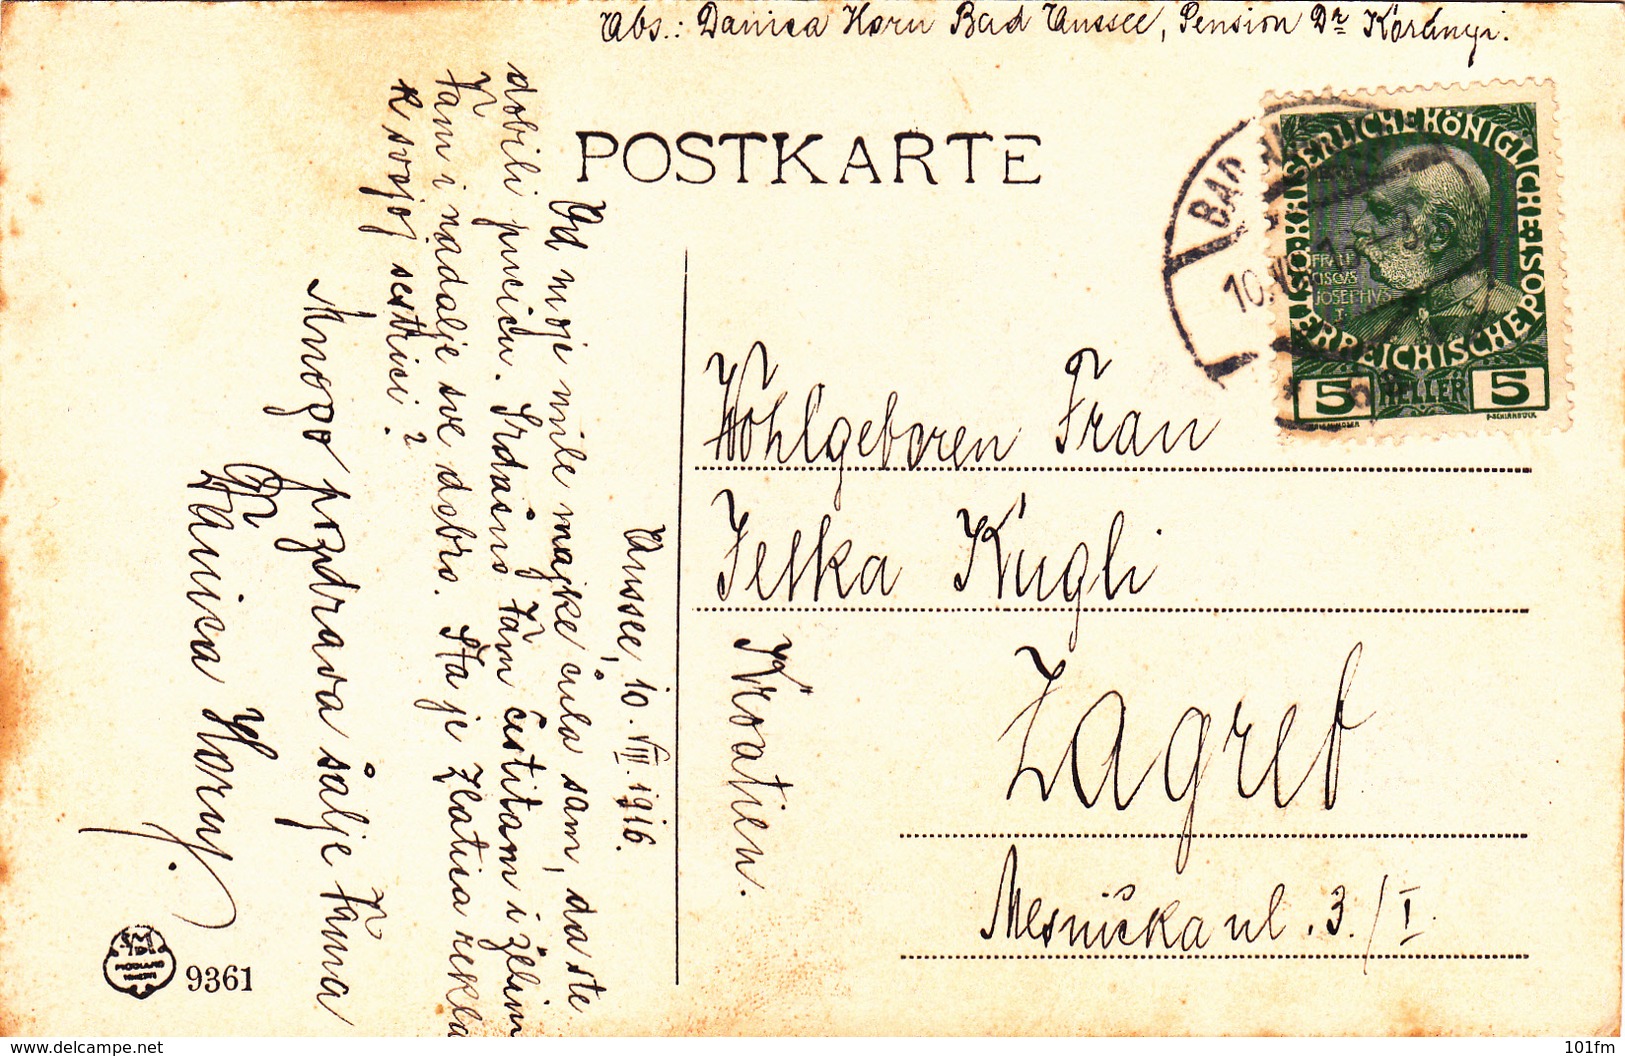 Abs.: Danica Horn Bad Aussee, Pension Dr Korányi.
POSTKARTE
KAISERLICHE KÖNIGLICHE
ÖSTERREICHISCHE POST
FRAN
CISCVS
JOSEPHVS
I
5 HELLER 5
BAD
10.
Aussee, 10. VIII. 1916.
Od moje mile majke čula sam, da ste
dobili pricicu. Srdačno Vam čestitam i želim
Vam i nadalje sve dobro. Šta je Zlatica rekla
k svojoj sestrici?
Mnogo pozdrava šalje Vama
Danica Horn.
Wohlgeboren Fran
Jelka Kugli
Zagreb
Kroatien.
Mesnička ul. 3./I.
9361
www.delcampe.net
101fm